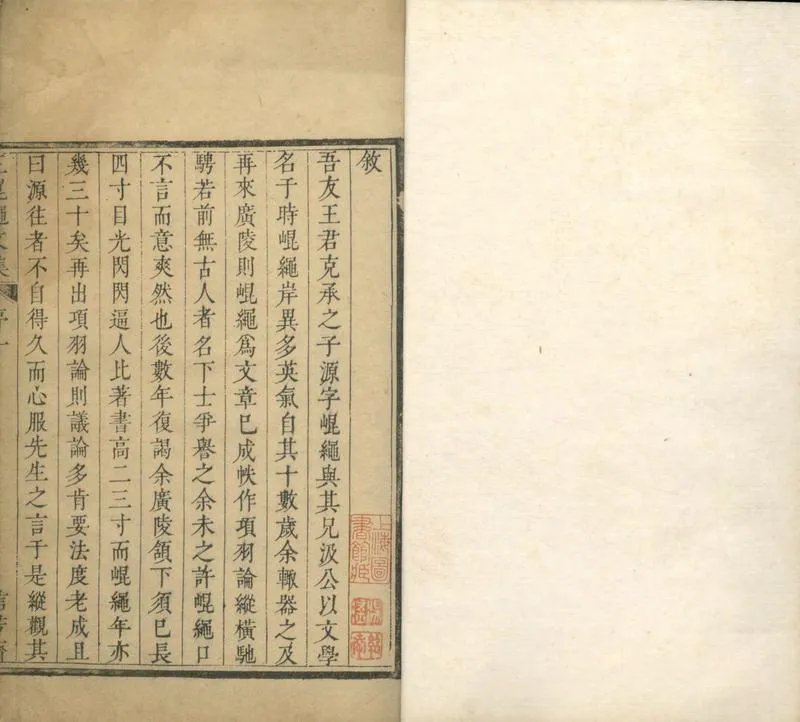 敘
吾友王君克承之子源字崐繩與其兄汲公以文學
名于時崐繩岸異多英氣自其十數歲余輙器之及
再來廣陵則崐繩爲文章已成帙作項羽論縱橫馳
騁若前無古人者名下士爭譽之余未之許崐繩口
不言而意爽然也後數年復謁余廣陵頷下須已長
四寸目光閃閃逼人比著書高二三寸而崐繩年亦
幾三十矣再出項羽論則議論多肯要法度老成且
曰源往者不自得久而心服先生之言于是縱觀其
上海圖
書館